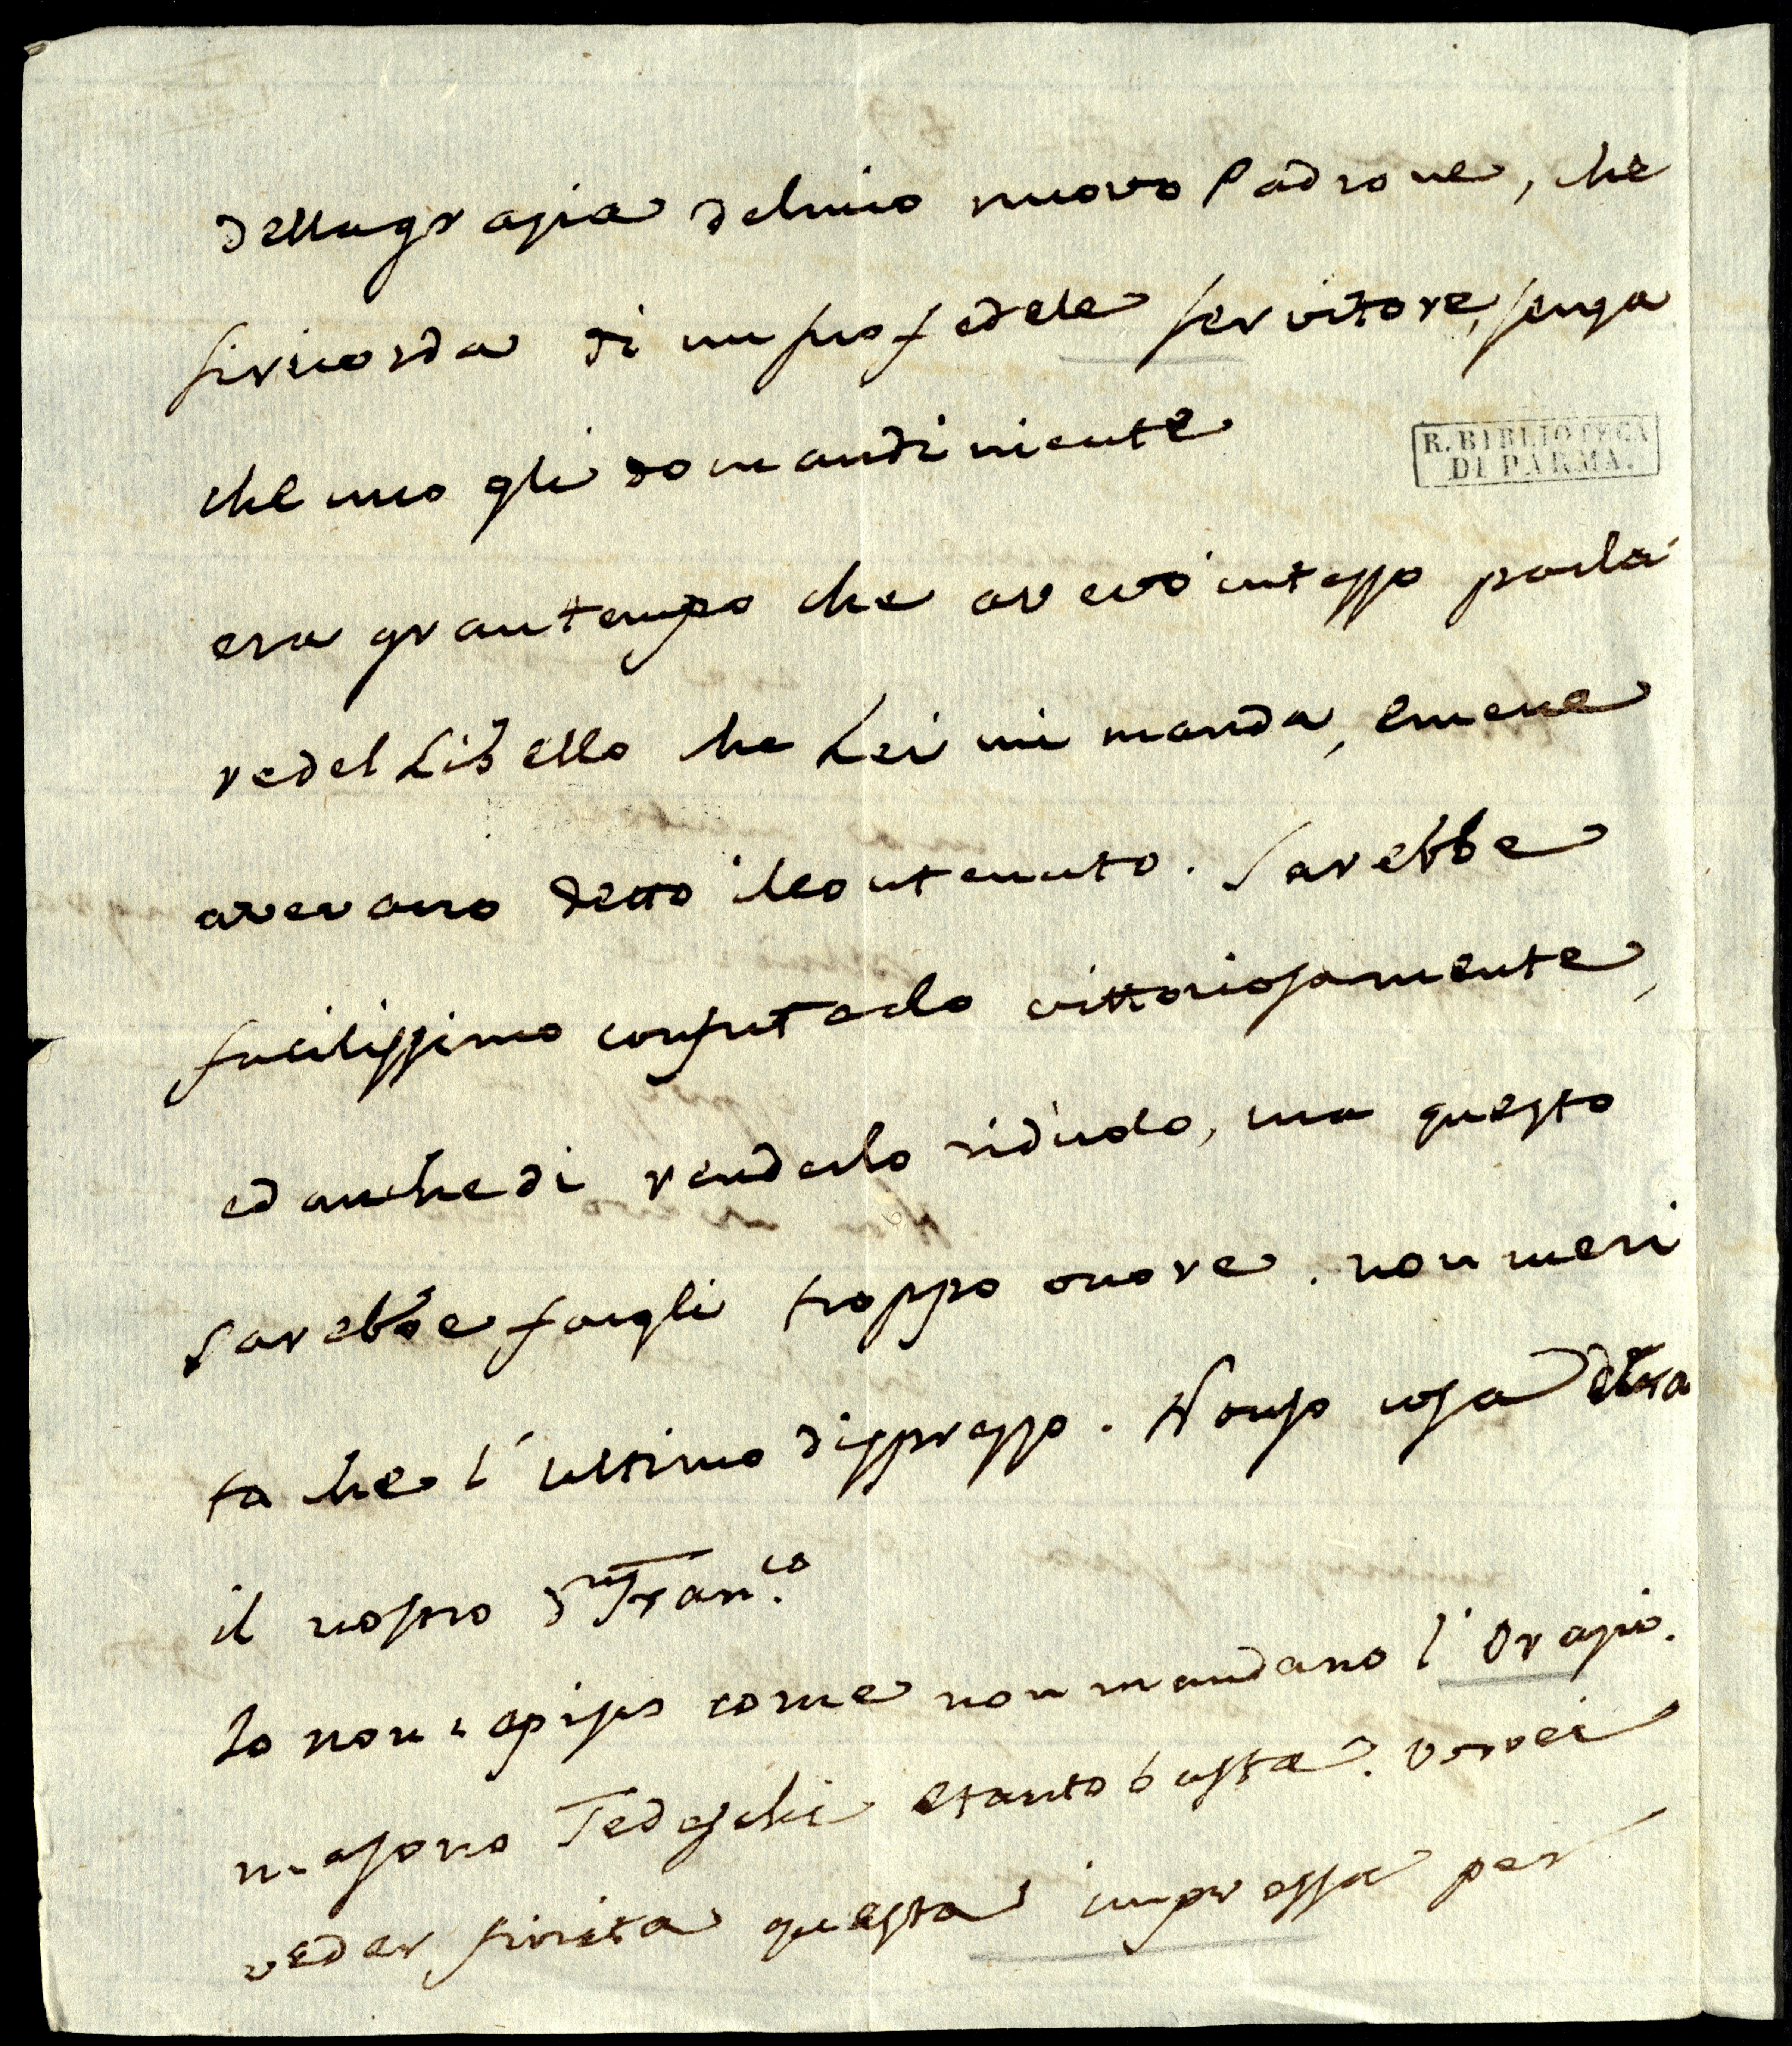 dellagrazia delmio nuovo Padrone, che
siricorda di un suo fedele servitore, senza
che uno gli domandi niente
era grantempo che avevo intesso parla
redel Libello che Lei mi manda, emene
avevano detto ilcontenuto. Sarebbe
facilissimo confutarlo vittoriosamente,
ed anchedi renderlo ridicolo, ma questo
Sarebbe fargli troppo onore. non meri
ta che l'ultimo disprezzo. Nonso cosa
il nostro Dn Franco.
Io non capisco come non mandano l'Orazio.
ma sono Tedeschi etanto basta. vorrei
veder finita questa impressa per
R. BIBLIOTECA
DI PARMA.